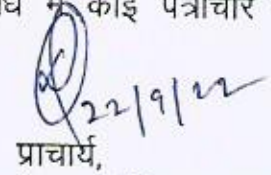 में कोई पत्राचार
22/9/22
प्राचार्य,